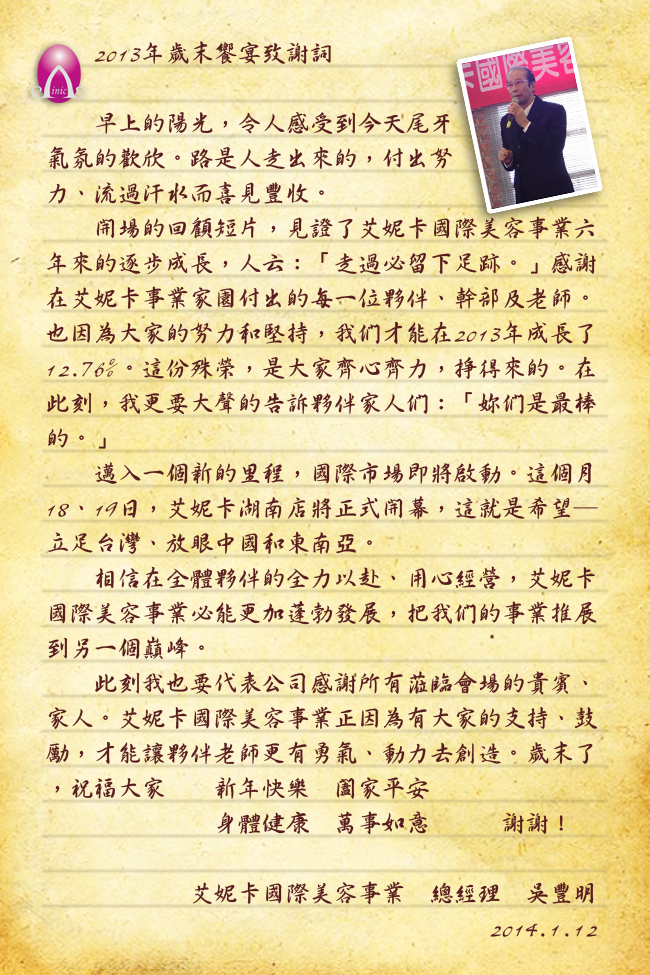 2013年歲末饗宴致謝詞
inic
卡國際美容
早上的陽光，令人感受到今天尾牙
氣氛的歡欣。路是人走出來的，付出努
力、流過汗水而喜見豐收。
開場的回顧短片，見證了艾妮卡國際美容事業六
年來的逐步成長，人云：「走過必留下足跡。」感謝
在艾妮卡事業家園付出的每一位夥伴、幹部及老師。
也因為大家的努力和堅持，我們才能在2013年成長了
12.76%。這份殊榮，是大家齊心齊力，掙得來的。在
此刻，我更要大聲的告訴夥伴家人們：「妳們是最棒
的。」
邁入一個新的里程，國際市場即將啟動。這個月
18、19日，艾妮卡湖南店將正式開幕，這就是希望─
立足台灣、放眼中國和東南亞。
相信在全體夥伴的全力以赴、用心經營，艾妮卡
國際美容事業必能更加蓬勃發展，把我們的事業推展
到另一個巔峰。
此刻我也要代表公司感謝所有蒞臨會場的貴賓、
家人。艾妮卡國際美容事業正因為有大家的支持、鼓
勵，才能讓夥伴老師更有勇氣、動力去創造。歲末了
，祝福大家　　新年快樂　闔家平安
身體健康　萬事如意　　　謝謝！
艾妮卡國際美容事業　總經理　吳豐明
2014.1.12